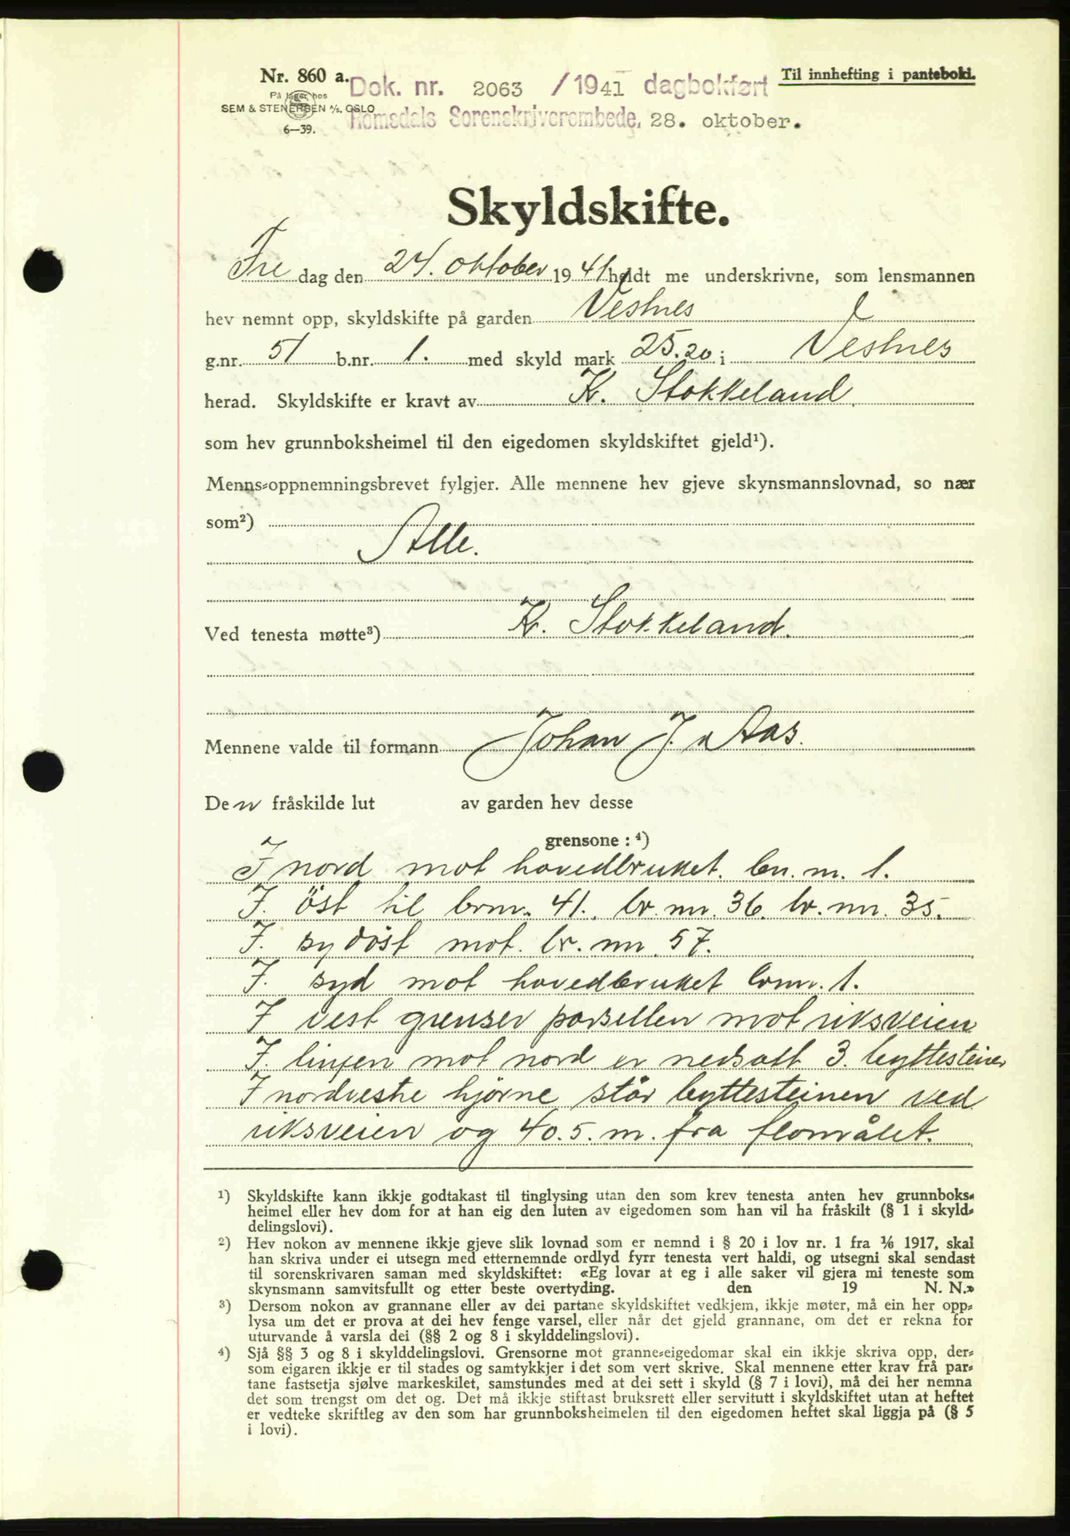 Nr. 860 a.
På lager hos
SEM & STENERSEN A/S. OSLO
6—39.
Til innhefting i pantebok.
Dok. nr. 2063 /1941 dagbokført
Romsdals Sorenskriverembede, 28. oktober.
Skyldskifte.
Fre dag den 24. oktober 1941 heldt me underskrivne, som lensmannen
hev nemnt opp, skyldskifte på garden Vestnes
g.nr. 51 b.nr. 1. med skyld mark 25.20 i Vestnes
herad. Skyldskifte er kravt av K. Stokkeland.
som hev grunnboksheimel til den eigedomen skyldskiftet gjeld¹).
Menns-oppnemningsbrevet fylgjer. Alle mennene hev gjeve skynsmannslovnad, so nær
som²)
Alle.
Ved tenesta møtte³) K. Stokkeland.
Mennene valde til formann Johan J. Aas.
Den fråskilde lut av garden hev desse
grensone : ⁴)
I nord mot hovedbruket. bn. nr. 1.
I. öst til brnr. 41. br. nr. 36. br. nr. 35.
I. sydöst mot. br. nr. 57.
I. syd mot hovedbruket brnr. 1.
I vest grenser parsellen mot riksveien
I. linjen mot nord er nedsatt 3. byttesteiner
I nordvestre hjörne står byttesteinen ved
riksveien og 40.5. m. fra flomålet.
¹) Skyldskifte kann ikkje godtakast til tinglysing utan den som krev tenesta anten hev grunnboks-
heimel eller hev dom for at han eig den luten av eigedomen som han vil ha fråskilt (§ 1 i skyld-
delingslovi).
²) Hev nokon av mennene ikkje gjeve slik lovnad som er nemnd i § 20 i lov nr. 1 fra 1/6 1917, skal
han skriva under ei utsegn med etternemnde ordlyd fyrr tenesta vert haldi, og utsegni skal sendast
til sorenskrivaren saman med skyldskiftet: «Eg lovar at eg i alle saker vil gjera mi teneste som
skynsmann samvitsfullt og etter beste overtyding. den 19 N. N.»
³) Dersom nokon av grannane eller av dei partane skyldskiftet vedkjem, ikkje møter, må ein her opp-
lysa um det er prova at dei hev fenge varsel, eller når det gjeld grannane, om det er rekna for
uturvande å varsla dei (§§ 2 og 8 i skylddelingslovi).
⁴) Sjå §§ 3 og 8 i skylddelingslovi. Grensorne mot granne-eigedomar skal ein ikkje skriva opp, der-
som eigaren ikkje er til stades og samtykkjer i det som vert skrive. Skal mennene etter krav frå par-
tane fastsetja sjølve markeskilet, samstundes med at dei sett i skyld (§ 7 i lovi), må dei her nemna
det som trengst om det og. Det må ikkje stiftast bruksrett eller servitutt i skyldskiftet utan at heftet
er vedteke skriftleg av den som har grunnboksheimelen til den eigedomen heftet skal liggja på (§ 5
i lovi).